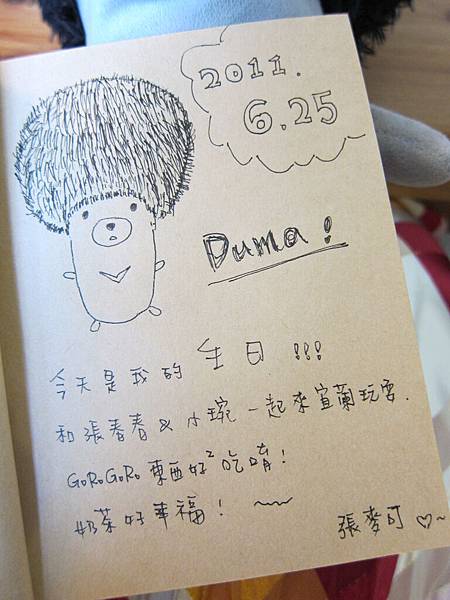 2011.
6.25
Duma!
今天是我的 生日 !!!
和張春春&小琬一起來宜蘭玩耍.
GoRoGoRo 東西好²吃唷!
奶茶好幸福! ~~
張麥可♡~